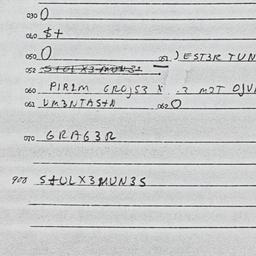 030 O
040 $+
050 O 051 ) EST3R TUN
052 S+OLX3MUN3S
060 PIR2M GROJS3 X . 3 M2T OJV
061 UM3NTAS+N 062 O
070 GRAG3R
908 S+ULX3MUN3S